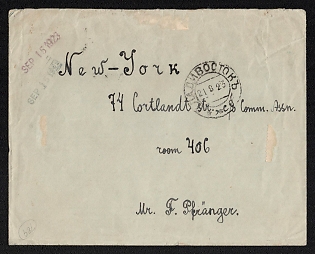 SEP 15 1923
SEP 1
New-York
ВЛАДИВОСТОКЪ
21 8 23
74 Cortlandt str. c/o Comm. Assn.
room 406
Mr. F. Pfränger.